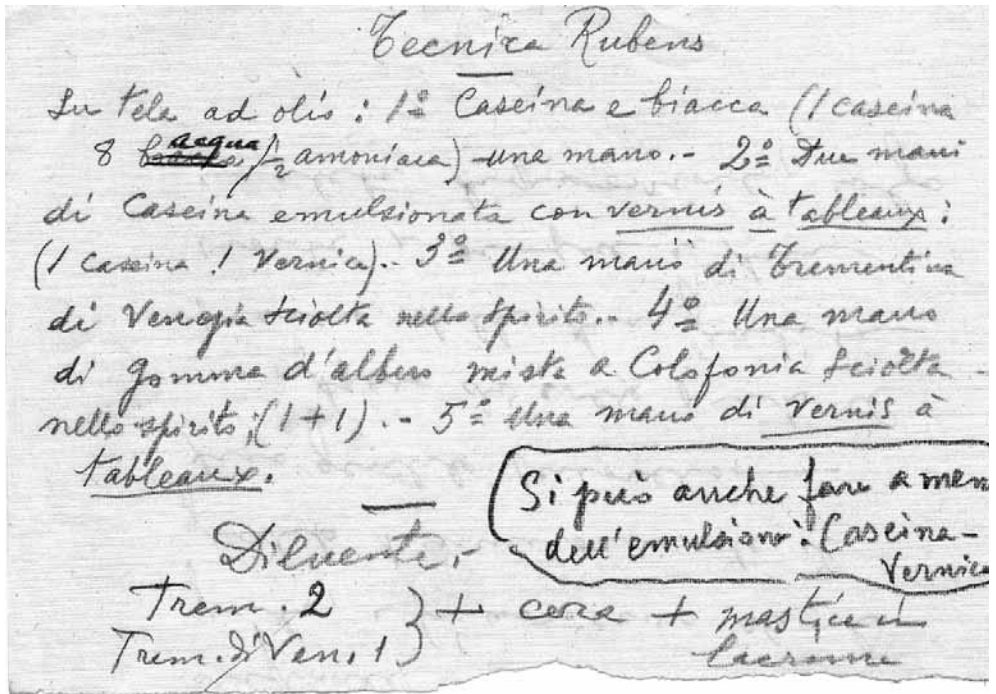 Tecnica Rubens
Su tela ad olio: 1º Caseina e biacca (1 caseina
8 acqua ½ amoniaca) una mano.- 2º Due mani
di Caseina emulsionata con vernis à tableaux:
(1 caseina 1 Vernice).- 3º Una mano di Trementina
di Venezia sciolta nello spirito.- 4º Una mano
di gomma d'albero mista a Colofonia sciolta
nello spirito; (1+1).- 5º Una mano di vernis à
tableaux.
Si può anche fare a men
dell'emulsione: Caseina-
Vernice
Diluente,-
Trem. 2 } + cera + mastice in
Trem. di Ven. 1 } lacrime